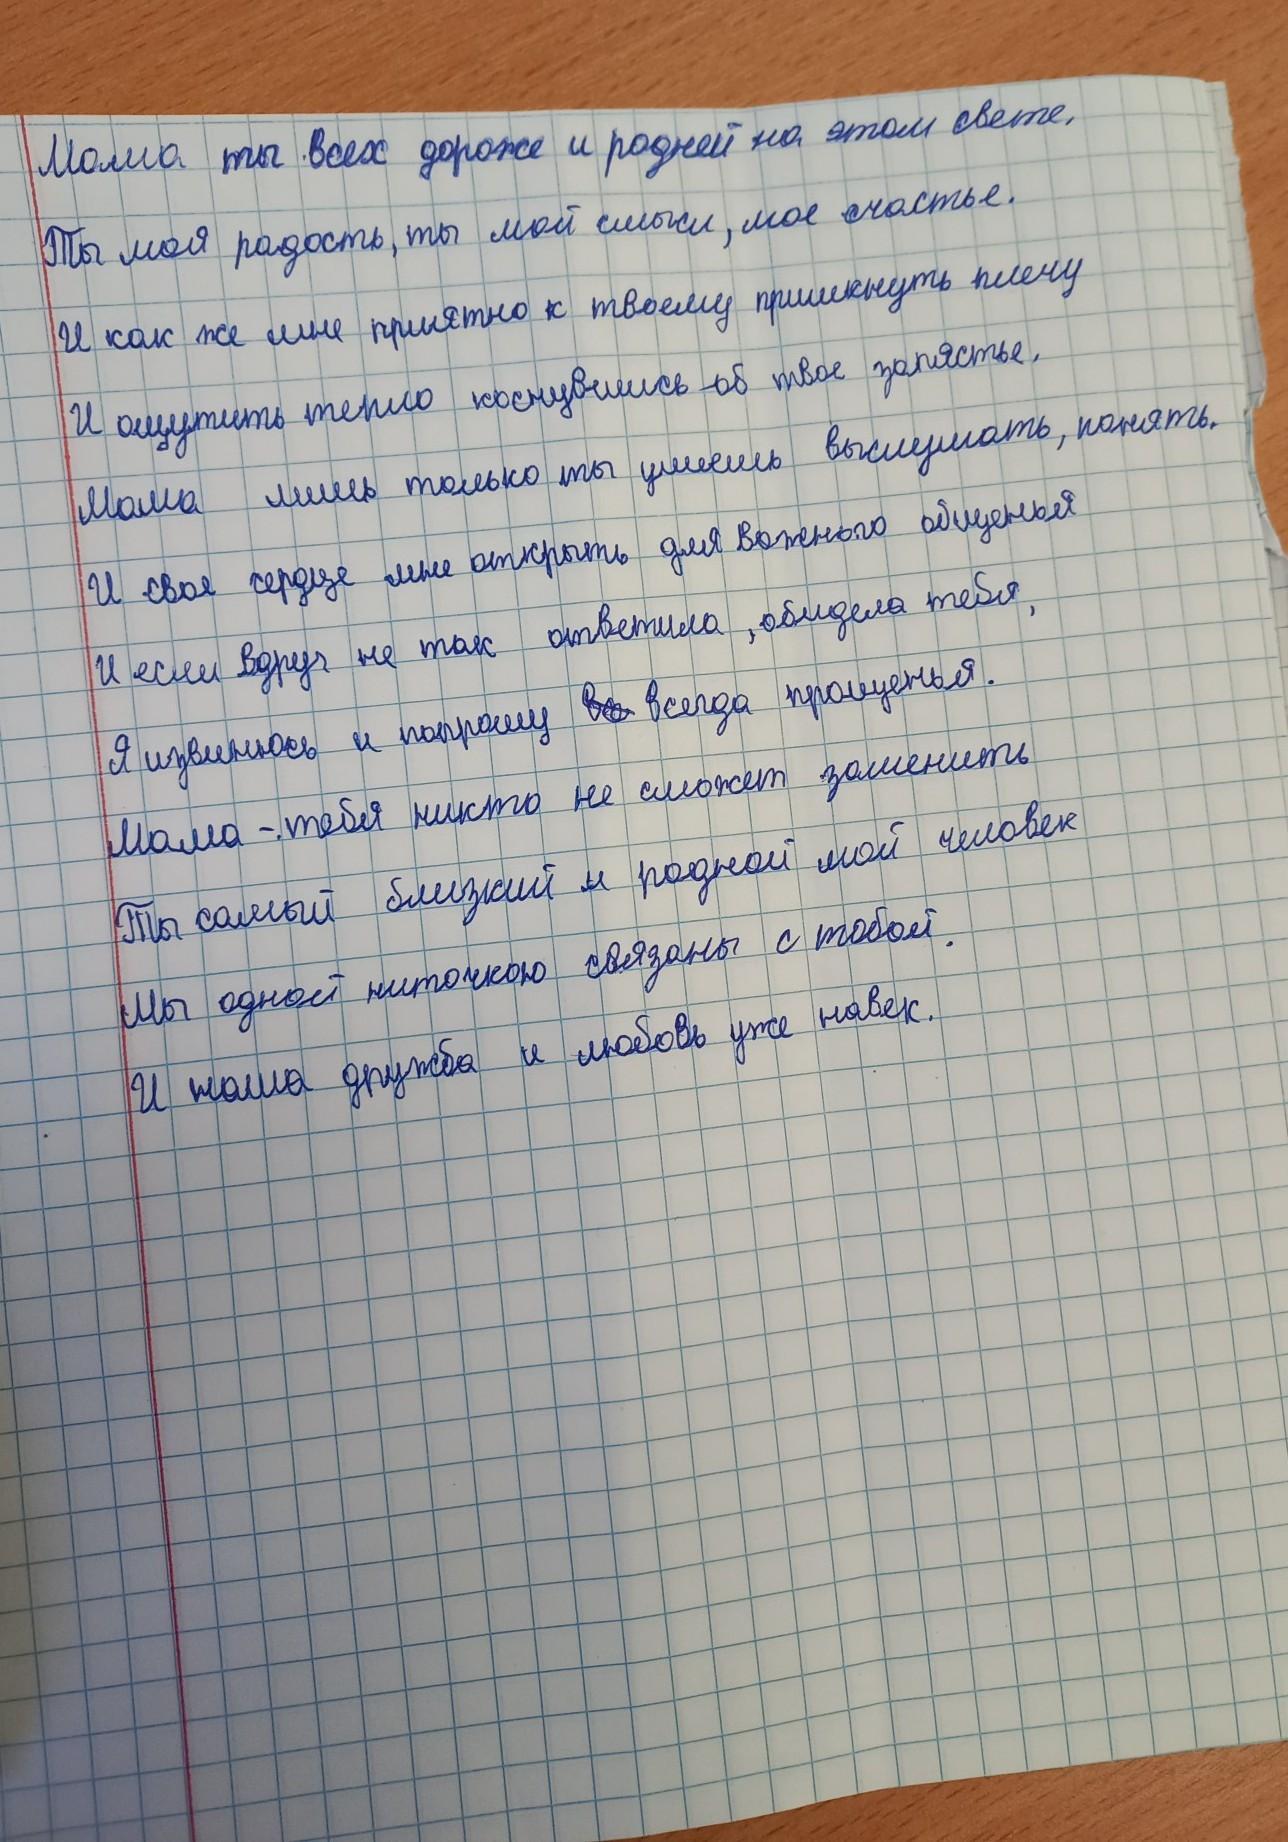 Мама ты всех дороже и родней на этом свете.
Ты моя радость, ты мой смысл, мое счастье.
И как же мне приятно к твоему прилькнуть плечу
И ощутить тепло коснувшись об твое запястье.
Мама лишь только ты умеешь выслушать, понять.
И свое сердце мне открыть для важного общенья
И если вдруг не так ответила, обидела тебя,
Я извинюсь и попрошу всегда прощенья.
Мама - тебя никто не сможет заменить
Ты самый близкий и родной мой человек
Мы одной ниточкою связаны с тобой.
И наша дружба и любовь уже навек.